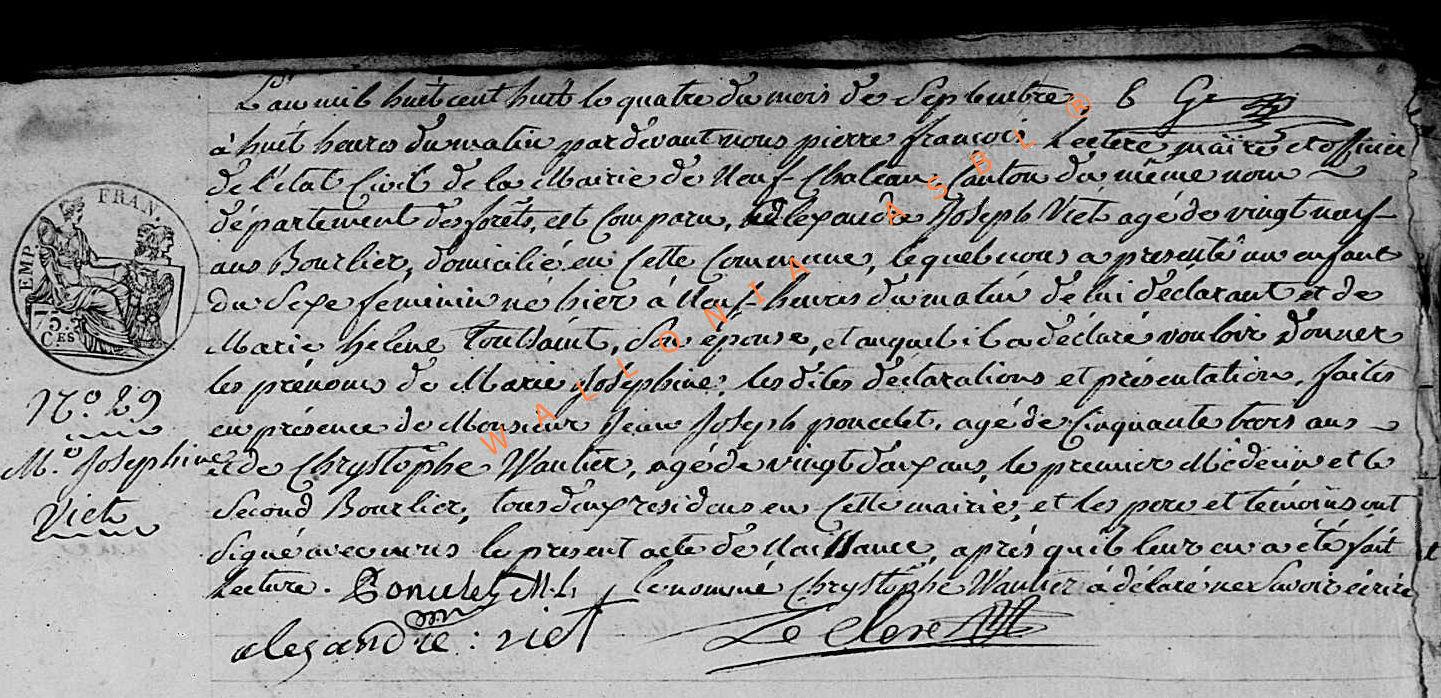 L'an mil huit cent huit le quatre du mois de Septembre,
à huit heures du matin pardevant nous pierre françois Leclere maire et officier
de l'état Civil de la Mairie de Neuf-Chateau, Canton du même nom
département des forêts, est Comparu, Alexandre Joseph Viet agé de vingt neuf
ans Bourlier, domicilié en Cette Commune, lequel nous a presenté un enfant
du Sexe féminin né hier à Neuf heures du matin de lui déclarant et de
Marie helene Toussaint, Son épouse, et auquel il a déclaré vouloir donner
les prénoms de Marie Joséphine; les dites déclarations et présentation, faites
en présence de Monsieur Jean Joseph poncelet, agé de Cinquante trois ans
et de Chrystophe Wautier, agé de vingt deux ans, le premier Médecin et le
Second Bourlier, tous deux residens en Cette mairie, et les pere et témoins ont
Signé avec nous le present acte de Naissance, aprés qu'il leur en a été fait
Lecture. Poncelet M.L. le nommé Chrystophe Wautier à déclaré ne Savoir écrire
alexandre : viet Le Clere
EMP. FRAN.
75.
CES
N.o 29
M.e Josephine
Viet
WALLONIA ASBL ®